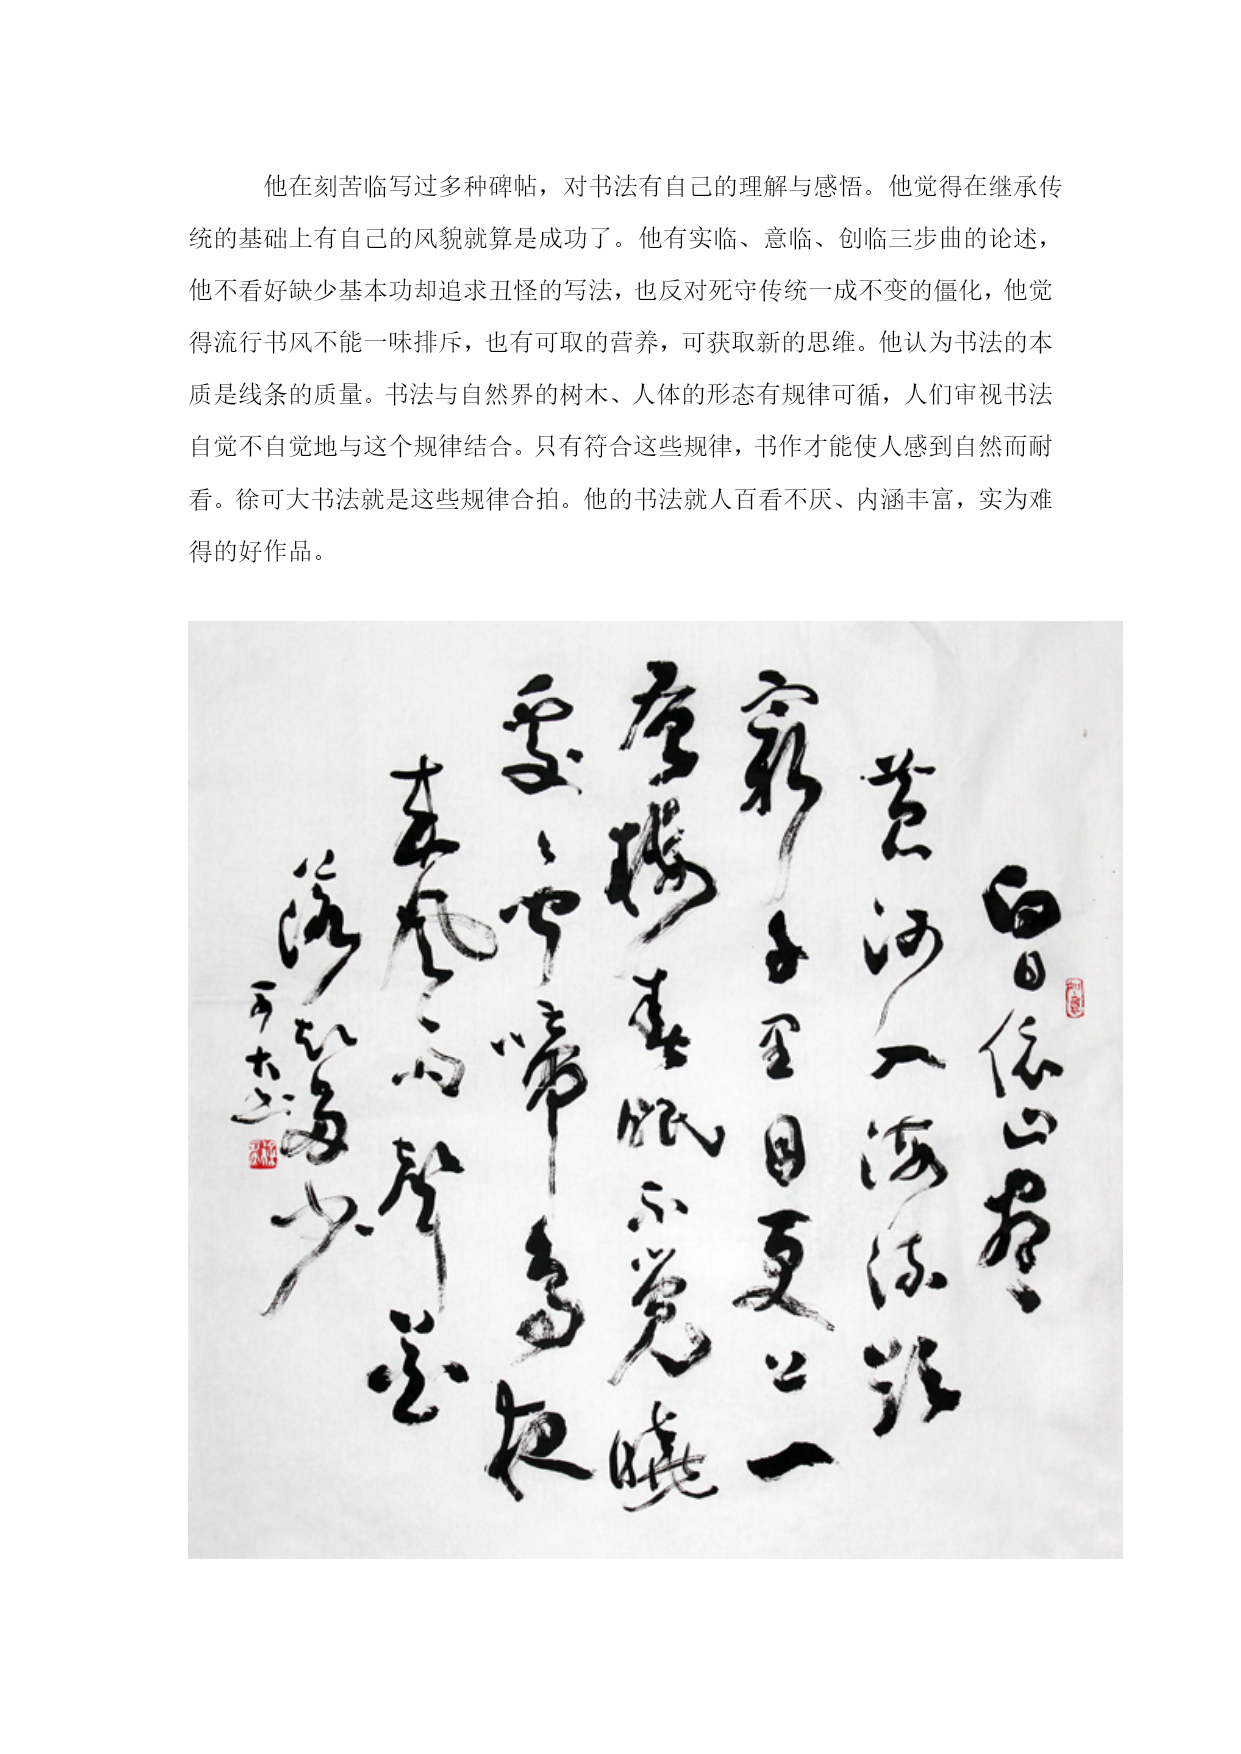 他在刻苦临写过多种碑帖，对书法有自己的理解与感悟。他觉得在继承传
统的基础上有自己的风貌就算是成功了。他有实临、意临、创临三步曲的论述，
他不看好缺少基本功却追求丑怪的写法，也反对死守传统一成不变的僵化，他觉
得流行书风不能一味排斥，也有可取的营养，可获取新的思维。他认为书法的本
质是线条的质量。书法与自然界的树木、人体的形态有规律可循，人们审视书法
自觉不自觉地与这个规律结合。只有符合这些规律，书作才能使人感到自然而耐
看。徐可大书法就是这些规律合拍。他的书法就人百看不厌、内涵丰富，实为难
得的好作品。
白日依山尽
黄河入海流欲
穷千里目更上一
层楼春眠不觉晓
處〻闻啼鸟夜
来风雨聲花
落知多少
可大书